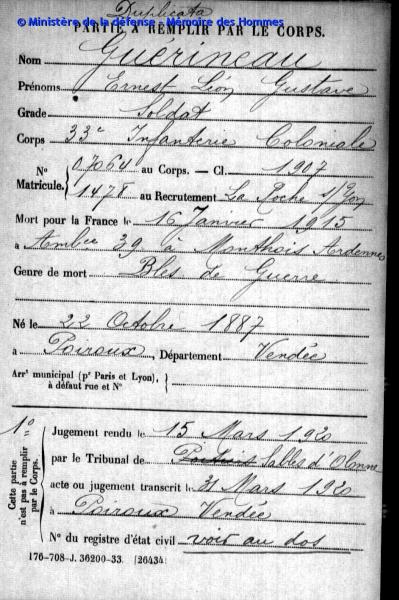 Duplicata
© Ministère de la défense - Mémoire des Hommes
PARTIE À REMPLIR PAR LE CORPS.
Nom Guérineau
Prénoms Ernest Léon Gustave
Grade Soldat
Corps 33e Infanterie Coloniale
N° Matricule. { 07064 au Corps. — Cl. 1907
1478 au Recrutement La Roche s/Yon
Mort pour la France le 16 Janvier 1915
à Ambce 39 à Monthois Ardennes
Genre de mort Bles de Guerre
Né le 22 Octobre 1887
à Poiroux, Département Vendée
Arrt municipal (pr Paris et Lyon), à défaut rue et N° {
1°
Cette partie n'est pas à remplir par le Corps.
Jugement rendu le 15 Mars 1920
par le Tribunal de Sables d'Olonne
acte ou jugement transcrit le 31 Mars 1920
à Poiroux Vendée
N° du registre d'état civil voir au dos
176-708-J. 36200-33. [26434]